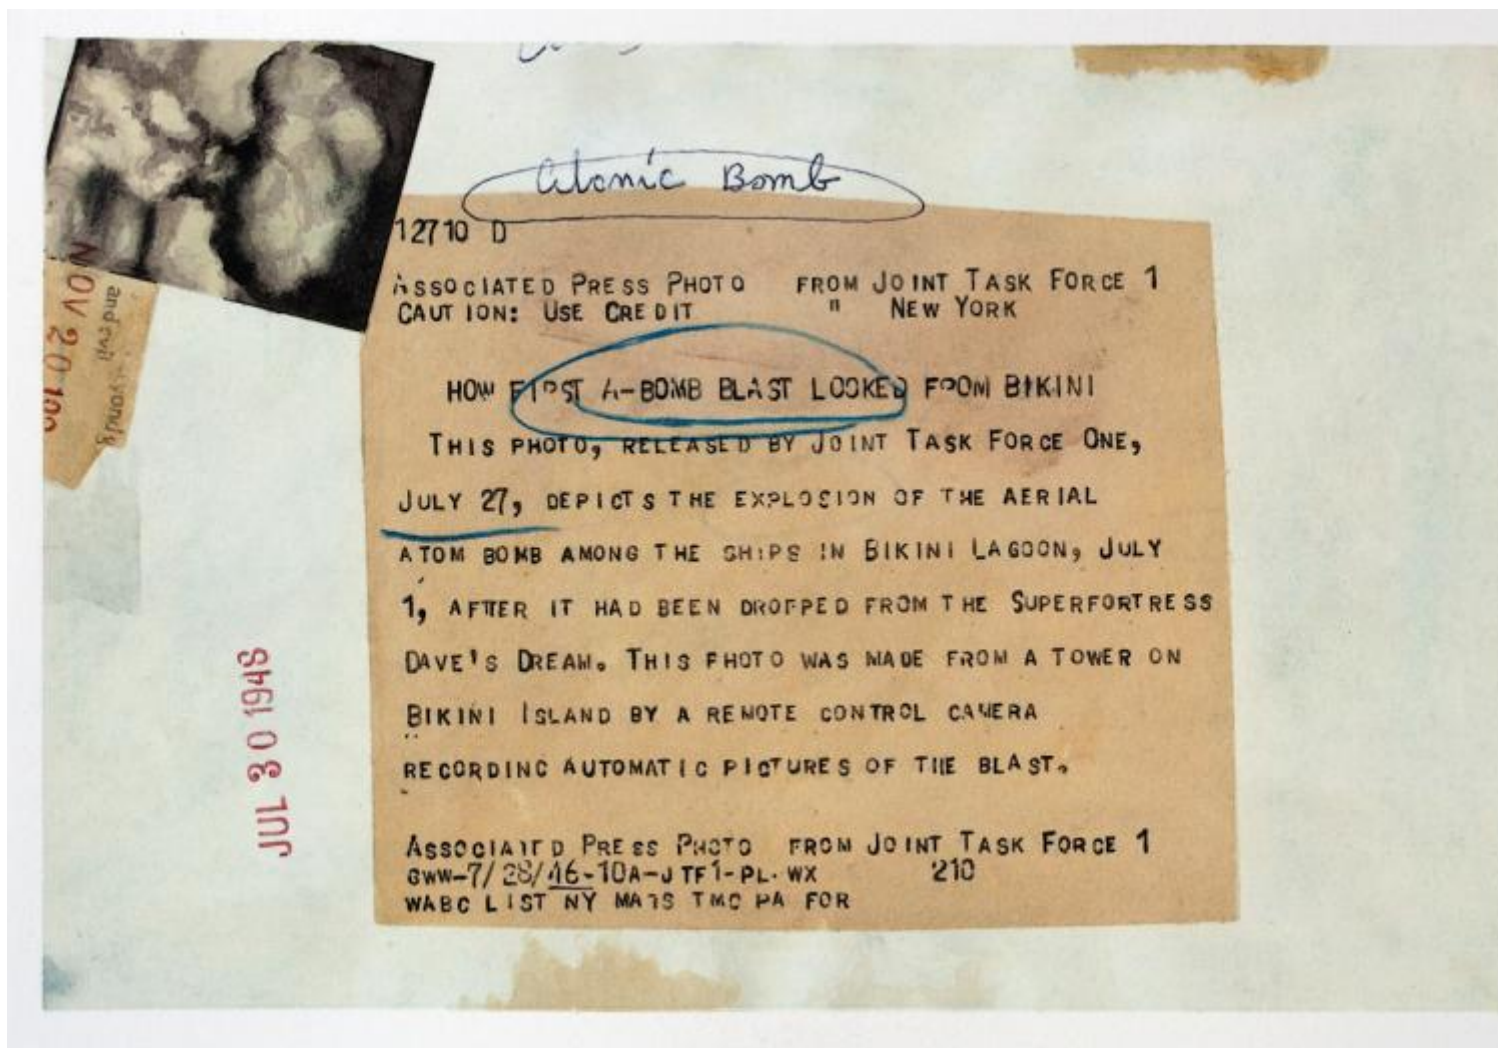 Atomic Bomb
12710 D
ASSOCIATED PRESS PHOTO FROM JOINT TASK FORCE 1
CAUTION: USE CREDIT " NEW YORK
HOW FIRST A-BOMB BLAST LOOKED FROM BIKINI
THIS PHOTO, RELEASED BY JOINT TASK FORCE ONE,
JULY 27, DEPICTS THE EXPLOSION OF THE AERIAL
ATOM BOMB AMONG THE SHIPS IN BIKINI LAGOON, JULY
1, AFTER IT HAD BEEN DROPPED FROM THE SUPERFORTRESS
DAVE'S DREAM. THIS PHOTO WAS MADE FROM A TOWER ON
BIKINI ISLAND BY A REMOTE CONTROL CAMERA
RECORDING AUTOMATIC PICTURES OF THE BLAST.
ASSOCIATED PRESS PHOTO FROM JOINT TASK FORCE 1
GWW-7/28/46-10A-JTF1-PL-WX 210
WABC LIST NY MATS TMC PA FOR
NOV 20
JUL 30 1948